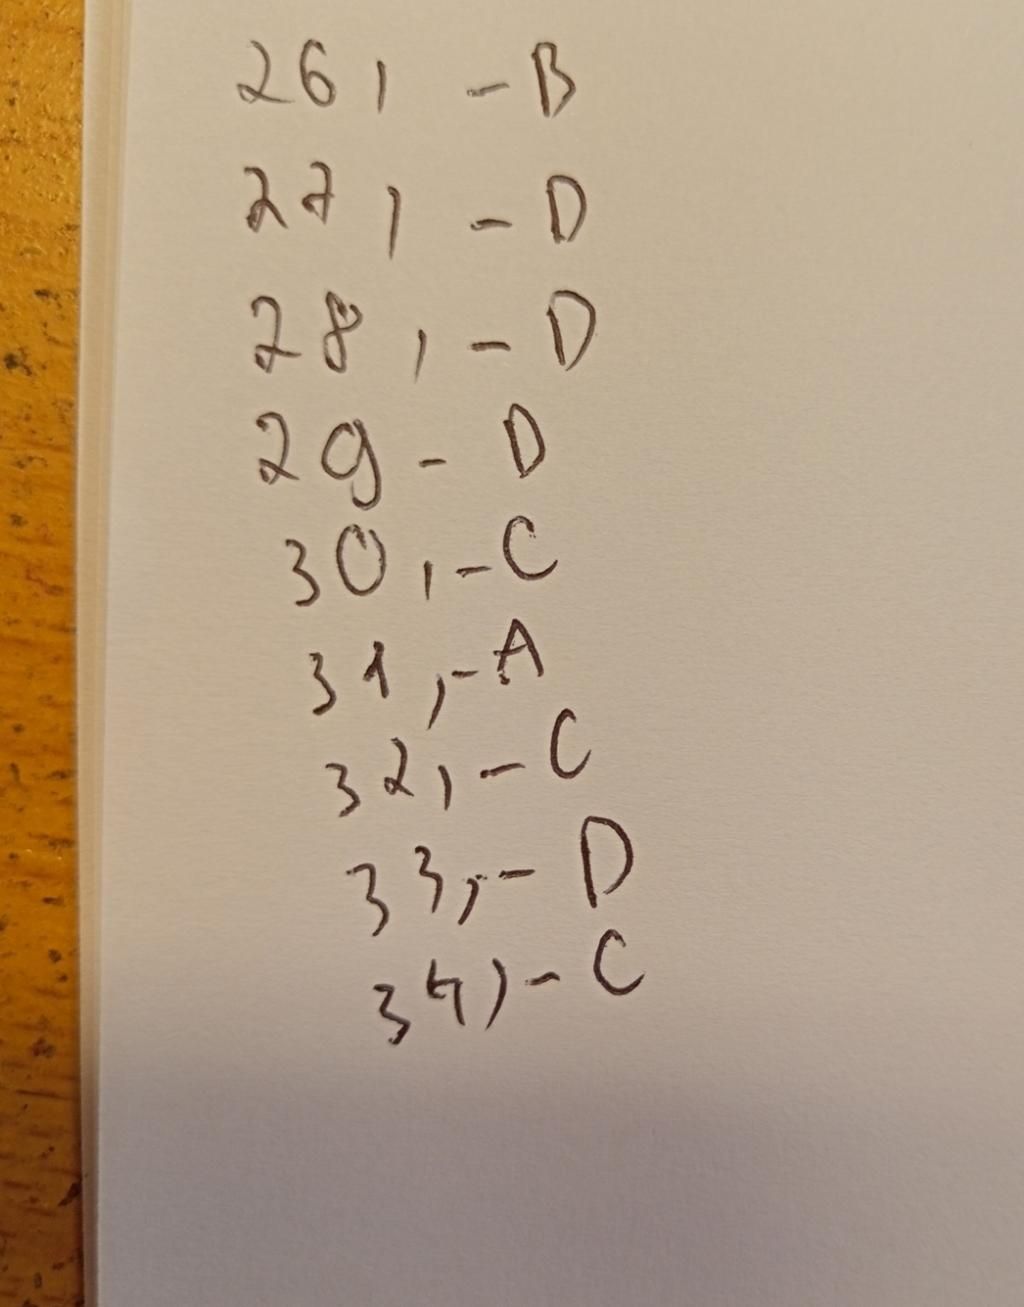 26, - B
27, - D
28, - D
29 - D
30, - C
31, - A
32, - C
33, - D
34, - C